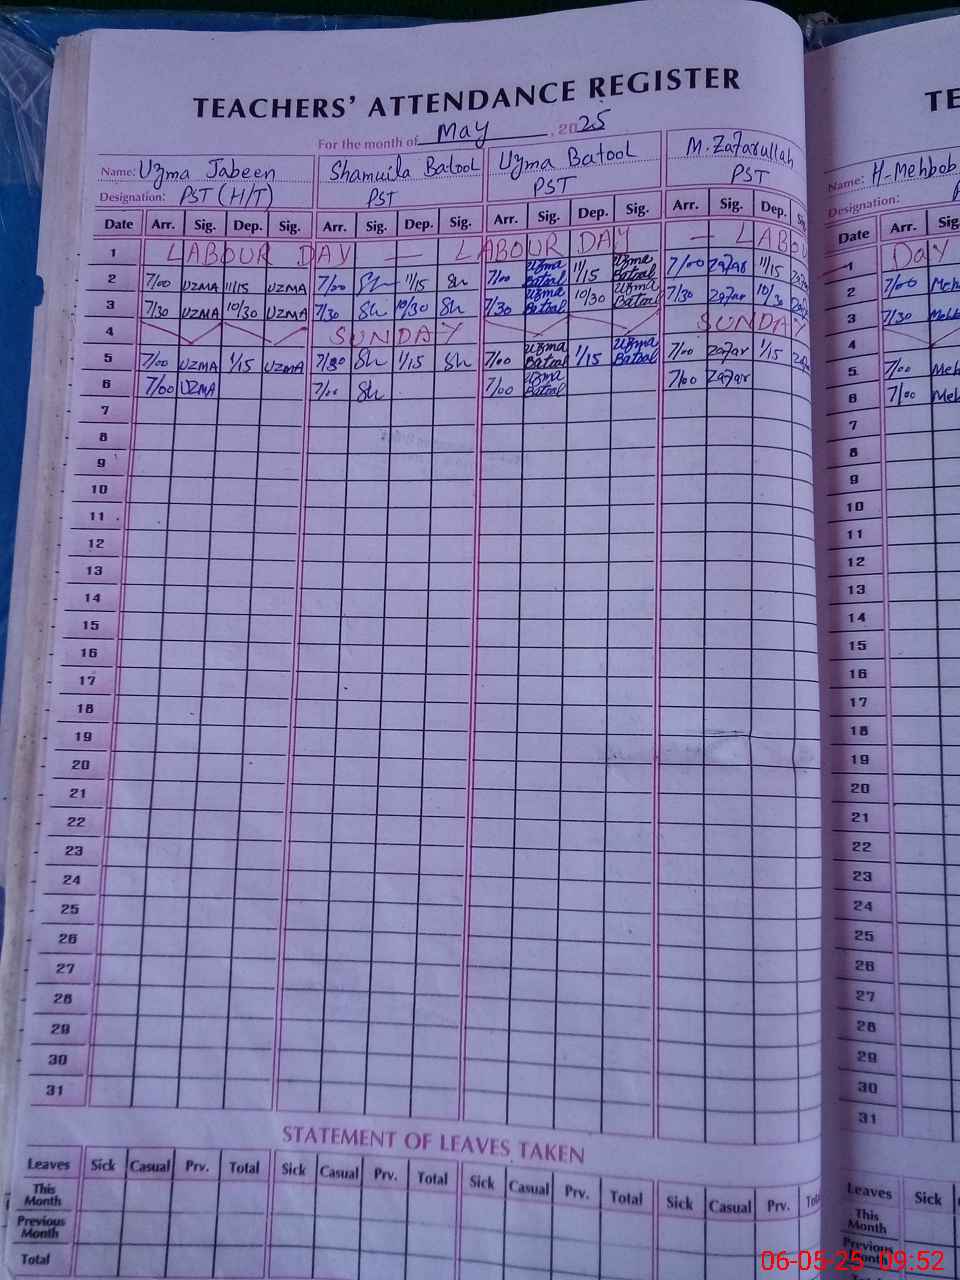 TEACHERS' ATTENDANCE REGISTER
For the month of May, 2025
Name: Uzma Jabeen Shamuila Batool Uzma Batool M. Zafarullah
Designation: PST (H/T) PST PST PST
Date Arr. Sig. Dep. Sig. Arr. Sig. Dep. Sig. Arr. Sig. Dep. Sig. Arr. Sig. Dep.
1 LABOUR DAY — LABOUR DAY — LABOU
2 7/00 UZMA 11/15 UZMA 7/00 Sh 11/15 Sh 7/00 Uzma Batool 11/15 Uzma Batool 7/00 Zafar 11/15 Zafar
3 7/30 UZMA 10/30 UZMA 7/30 Sh 10/30 Sh 7/30 Uzma Batool 10/30 Uzma Batool 7/30 Zafar 10/30 Zafar
4 SUNDAY SUNDAY
5 7/00 UZMA 1/15 UZMA 7/00 Sh 1/15 Sh 7/00 Uzma Batool 1/15 Uzma Batool 7/00 Zafar 1/15
6 7/00 UZMA 7/00 Sh 7/00 Uzma Batool 7/00 Zafar
7
8
9
10
11
12
13
14
15
16
17
18
19
20
21
22
23
24
25
26
27
28
29
30
31
STATEMENT OF LEAVES TAKEN
Leaves Sick Casual Prv. Total Sick Casual Prv. Total Sick Casual Prv. Total Sick Casual Prv.
This Month
Previous Month
Total
TE
Name: H-Mehbob
Designation:
Date Arr. Sig.
1 DAY
2 7/00 Meh
3 7/30 Meh
4
5 7/00 Meh
6 7/00 Meh
7
8
9
10
11
12
13
14
15
16
17
18
19
20
21
22
23
24
25
26
27
28
29
30
31
Leaves Sick
This Month
Previous Month
06-05-25 09:52